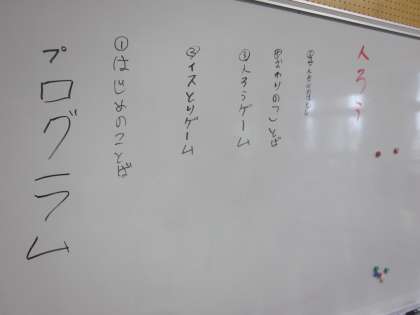 プログラム
①はじめのことば
②イスとりゲーム
③人ろうゲーム
④おわりのことば
人ろう